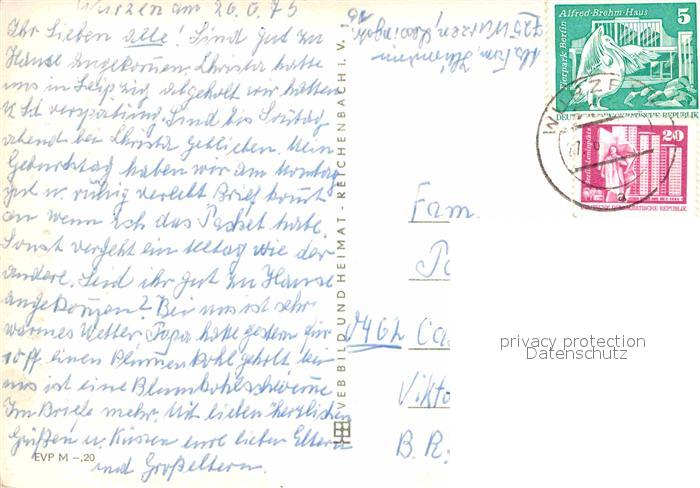 Wurzen am 26.6.75
Ihr Lieben alle! Sind gut zu
Hause angekommen Christa hatte
uns in Leipzig abgeholt wir hatten
2 Std verspätung. Sind bis Sonntag
abend bei Christa geblieben. Mein
Geburtstag haben wir am Montag
gut u. ruhig verlebt Brief kommt
an wenn ich das Packet habe.
Sonst vergeht ein Alltag wie der
andere. Seid ihr gut zu Hause
angekommen? Bei uns ist sehr
warmes Wetter. Papa hatte gestern für
10 Pf einen Blumenkohl geholt bei
uns ist eine Blumkohlschwemme
Im Briefe mehr. Mit lieben herzlichen
Grüßen u. Küssen eure lieben Eltern
und Großeltern.
EVP M –,20
VEB BILD UND HEIMAT · REICHENBACH I. V.
725 Wurzen
Alfred-Brehm-Haus
Tierpark Berlin
5
DEUTSCHE DEMOKRATISCHE REPUBLIK
WURZEN
a
20
DEUTSCHE DEMOKRATISCHE REPUBLIK
Fam.
Vikto
B.R.
privacy protection
Datenschutz